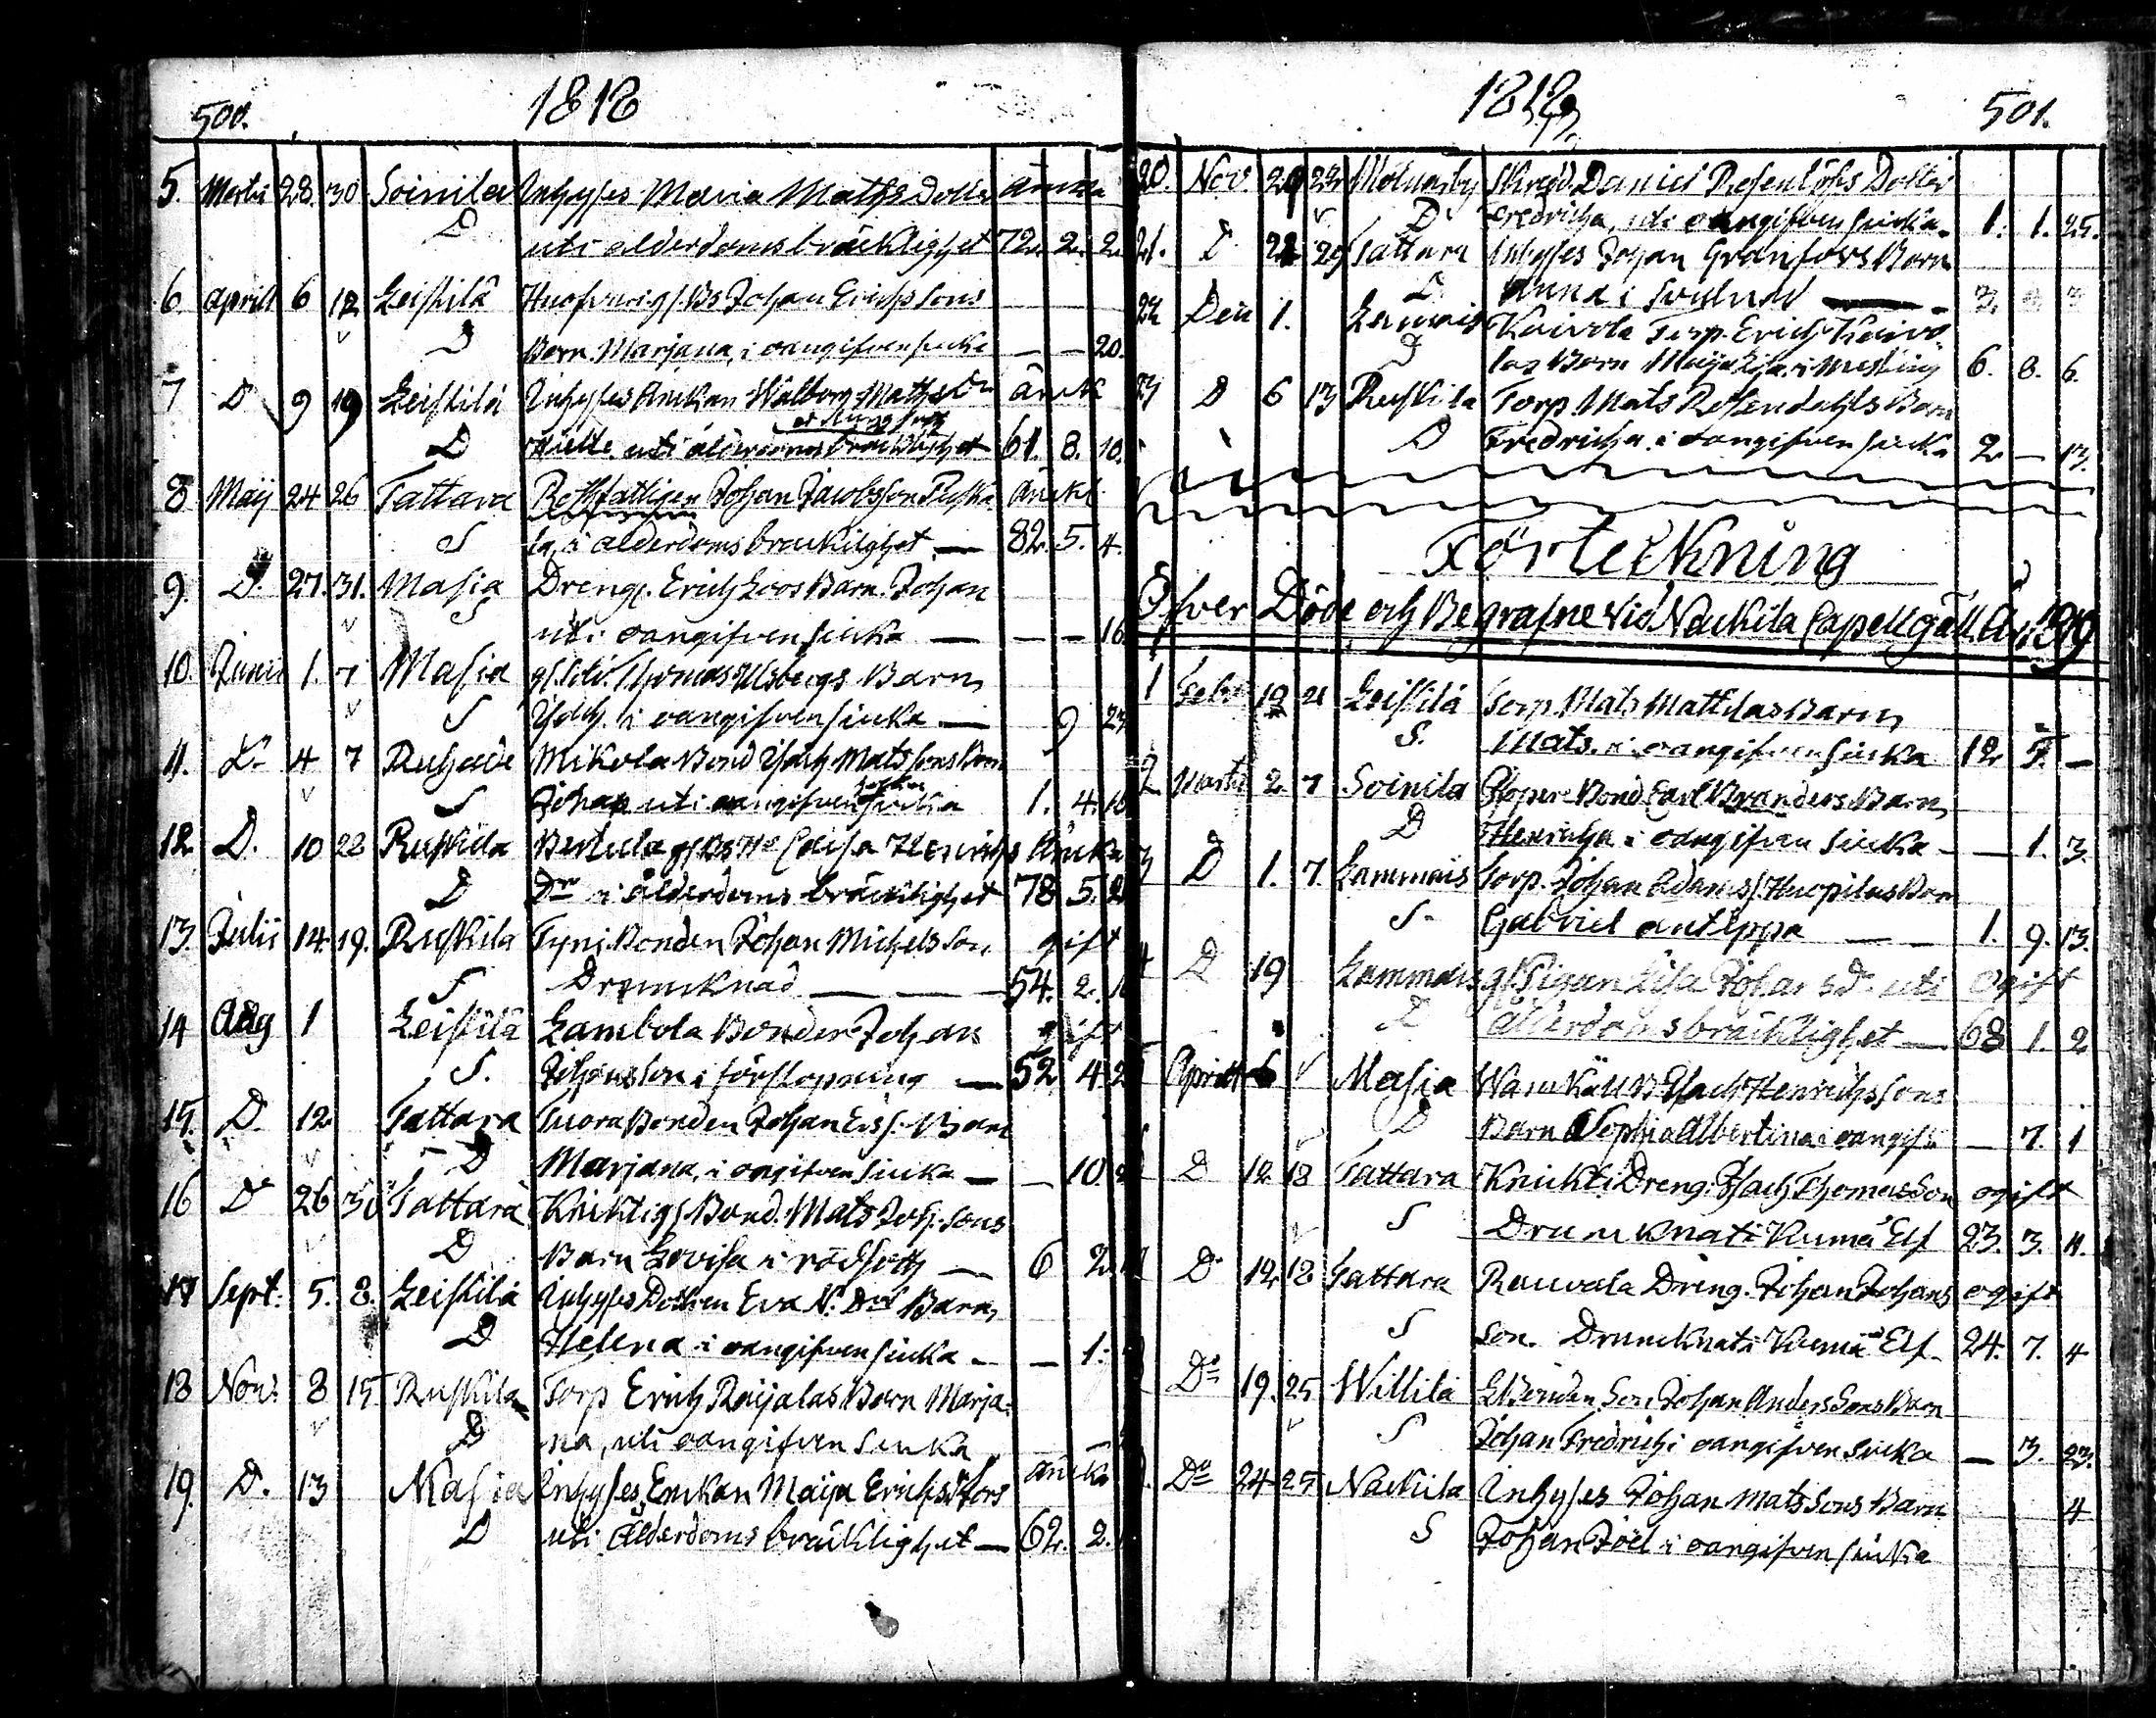 500.
1818
5. Martii 28. 30 Soinila Inhyses Maria Mats Dotter änka
D uti alderdoms bräcklighet 72. 2. 2.
6 Aprill 6 12 Leistilä Johan Erichssons
D Barn Marjana, i oangifven siuka — — 20.
7 D 9 19 Leistilä Inhyses Änkan Walborg Mats Dr änk
D uti ålderdoms bräcklighet 61. 8. 10.
8 Maij 24 26 Tattara Rothfattigen Johan Jacobsson Ruski änkl
S la, i alderdoms bräcklighet — 82. 5. 4.
9. D. 27. 31. Masia Dreng. Erich Loos Barn Johan
S uti oangifven siuka — — — 16
10. Junii 1. 7 Masia Thomas Ulsbergs Barn
S i oangifven siuka — 9 23
11. D 4 7 Mikola Bond Isach Matssons Barn
S Johan uti oangifven siuka 1. 4. 10
12 D. 10 22 Ruskila Caisa Henrichs Änka
D Dr i ålderdoms bräcklighet 78 5. 2
13. Julii 14. 19. Ruskila Tyni Bonden Johan Michelsson gift
S Druncknad — 54. 2. 1
14 Aug 1 Leistilä Lambola Bonden Johan gift
S. Johansson i förstopning — 52 4. 2
15. D. 12 Tattara Tuora Bonden Johan Ers. Barn
D Marjana, i oangifven siuka — — 10
16 Do 26 30 Tattara Knihti Bond. Mats Joh. sons
D Barn Lovisa i rödsoth — 6 2.
17 Sept. 5. 8. Leistilä Inhyses Eva Barn
D Helena i oangifven siuka — — 1.
18 Nov. 8 15 Ruskila Torp Erich Raijalas Barn Marja-
D na, uti oangifven siuka — —
19. D. 13 Masia Inhyses Enckan Maija Erichs änka
D uti Ålderdoms bräcklighet — 62. 2.
1818
501.
20. Nov 29 Daniel Rosenlöfs Dotter
D Fredricha, uti oangifven siuka. 1. 1. 25.
21. D 22 29 Tattara Inhyses Johan Granfors Barn
D Anna i 3
22 Dec 1. Lammais Kaivola Torp. Erich Kaivo-
las Barn Maija Lisa i Messling 6. 8. 6.
23 D 6 13 Ruskila Torp. Mats Rosendahls Barn
D Fredricha i oangifven siuka 2 — 13.
Förteckning
Öfver Döde och Begrafne vid Nackila Capellgäll År 1819
1 Febr 19 21 Leistilä Torp. Mats Mattilas Barn
S. Mats. i oangifven siuka 12 5. —
2 Martii 2 7 Soinila Bond. Carl Branders Barn
D Henricha i oangifven siuka — — 1. 3.
3 D 1. 7. Lammais Torp. Johan Adams. Huopilas Barn
S Gabriel 1. 9. 13.
4 D 19 Lammais Pigan Lisa Johans Dr uti ogift
D ålderdoms bräcklighet — 68 1. 2
Aprill 6 Masia Isach Henrichssons
D Barn Sophia Albertina i oangif — 7. 1
D 12 18 Tattara Knickti Dreng. Isach Thomasson ogift
S Drucknat i Kumå Elf 23. 3. 11.
D 12 18 Tattara Rauvala Dreng. Johan Johans ogift
S son. Druncknat i Kumå Elf 24. 7. 4
Do 19. 25 Willilä Johan Anderssons Barn
S Johan Fredrich i oangifven siuka — 3. 23.
Do 24 25 Nackila Inhyses Johan Matssons Barn
S Johan Joel i oangifven siuka 4